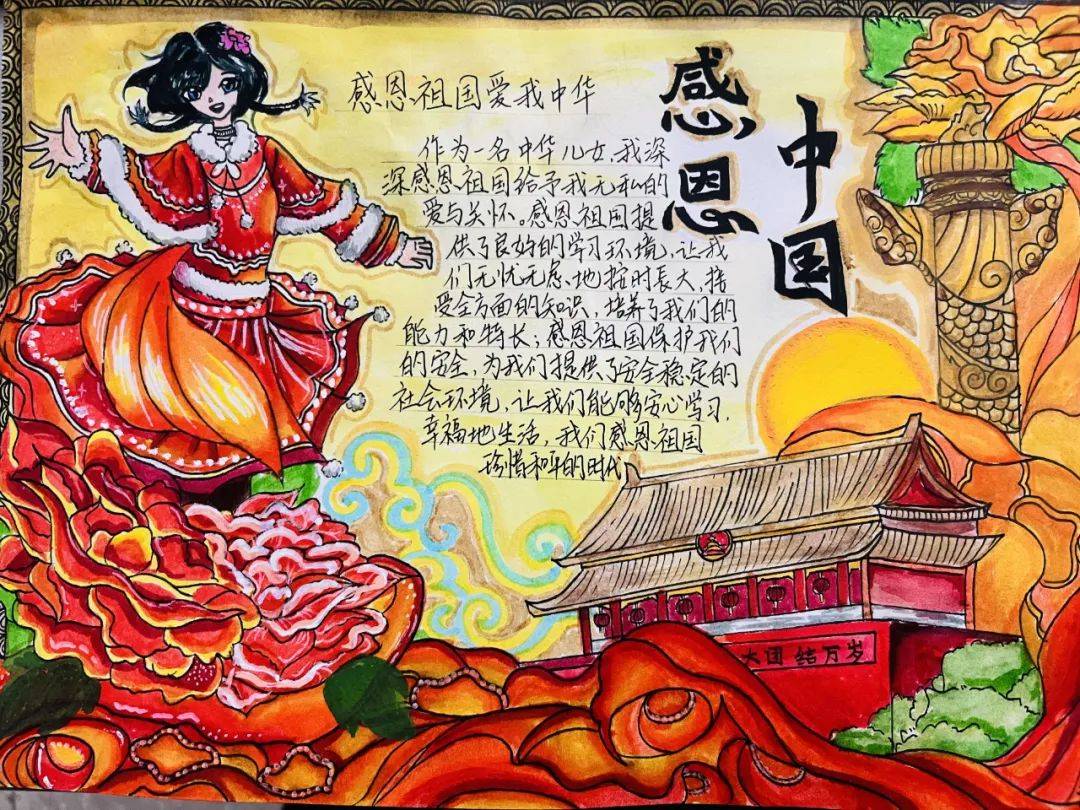 感恩
中国
感恩祖国爱我中华
作为一名中华儿女，我深
深感恩祖国给予我无私的
爱与关怀。感恩祖国提
供了良好的学习环境，让我
们无忧无虑地按时长大，接
受全方面的知识，培养了我们的
能力和特长；感恩祖国保护我们
的安全，为我们提供了安全稳定的
社会环境，让我们能够安心学习，
幸福地生活，我们感恩祖国
珍惜和平的时代
大团结万岁